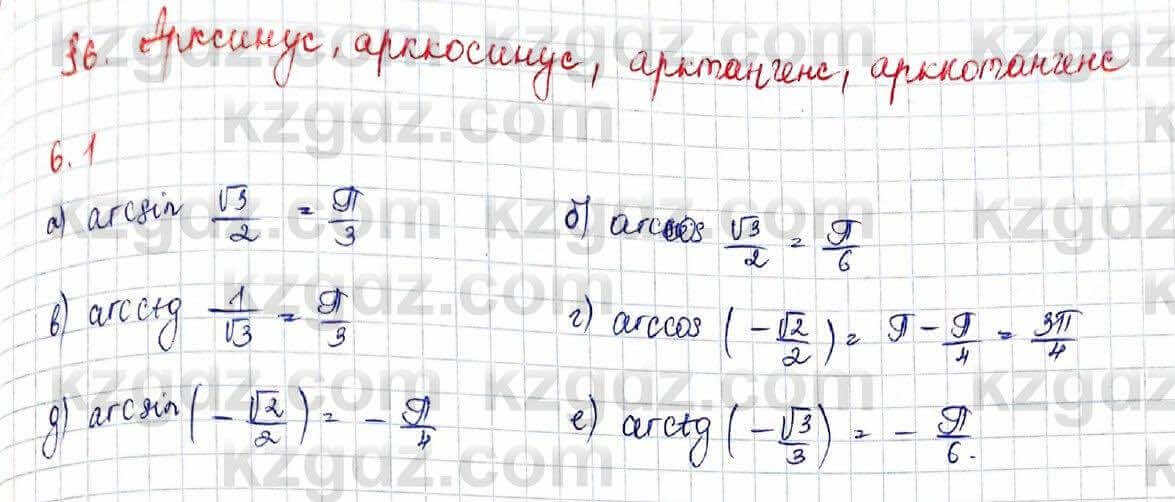 §6. Арксинус, арккосинус, арктангенс, арккотангенс
6.1
а) arcsin √3/2 = π/3 б) arccos √3/2 = π/6
в) arcctg 1/√3 = π/3 г) arccos (-√2/2) = π - π/4 = 3π/4
д) arcsin (-√2/2) = - π/4 е) arctg (-√3/3) = - π/6.
kzgdz.com